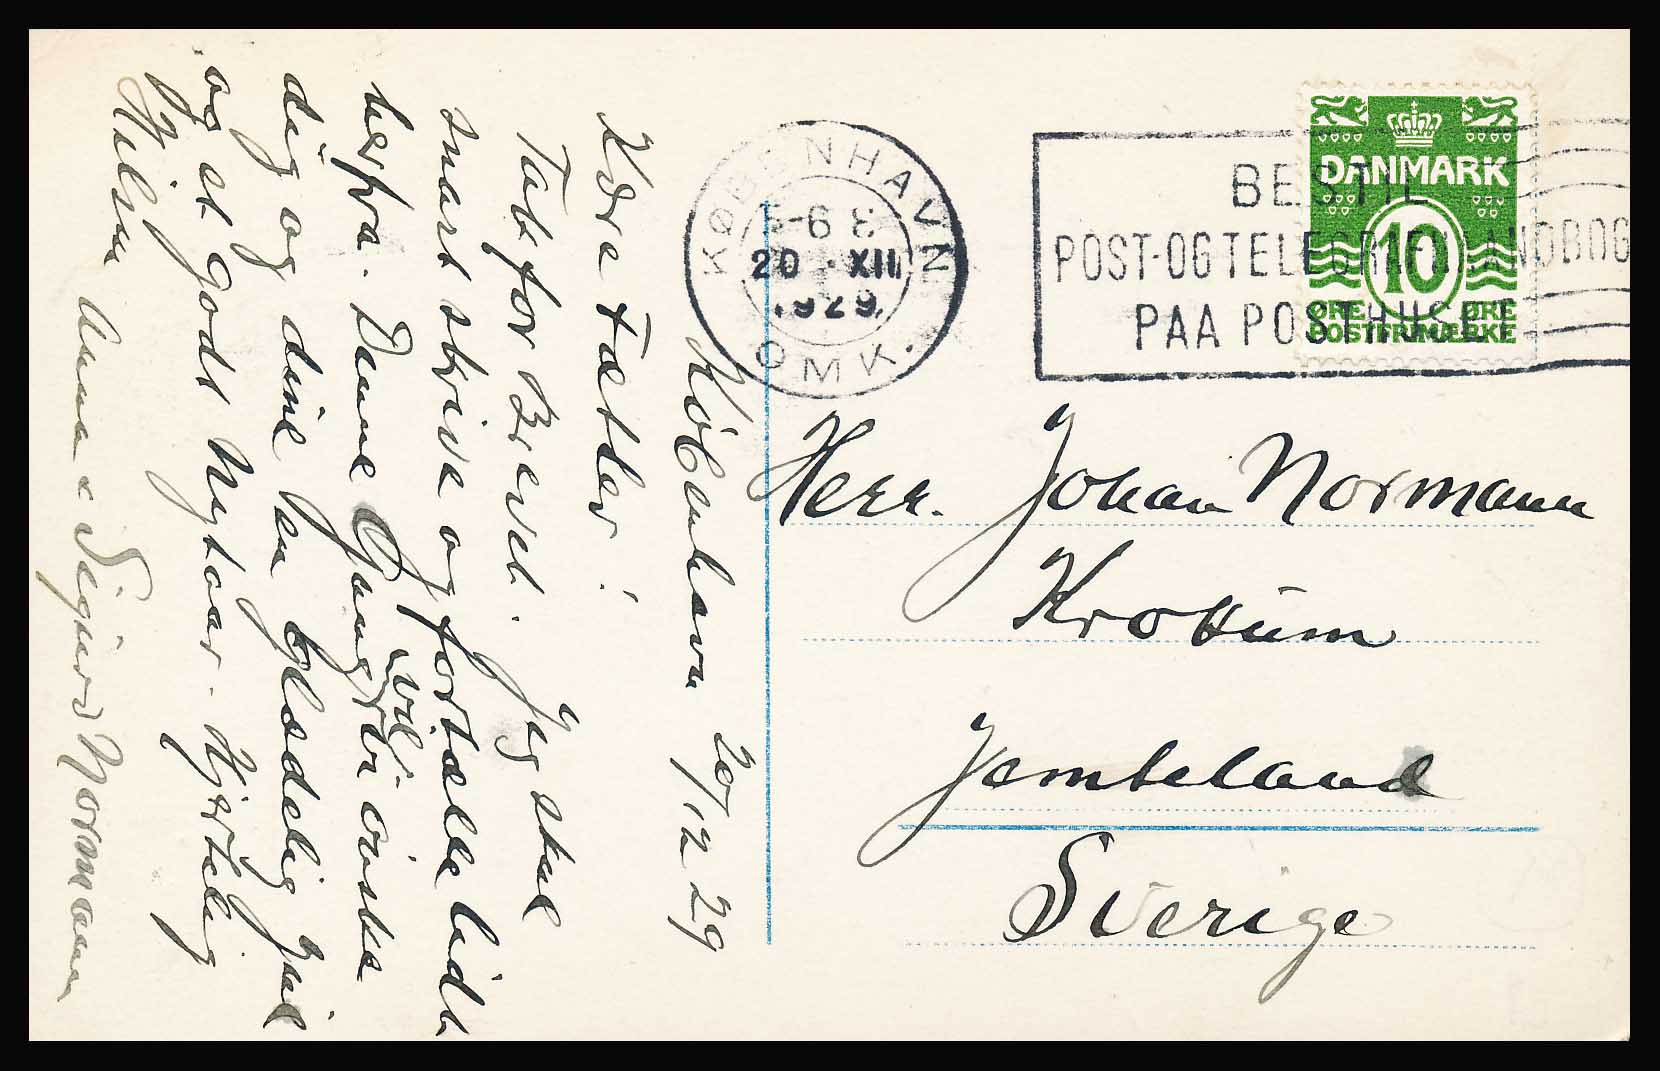 København 20/12 29
Kære Fætter!
Tak for Brevet. Jeg skal
snart skrive og fortælle lidt
herfra. Denne Gang vil
vi ønske
dig og dine en glædelig Jul
og et godt Nytaar. Hjertelig
Hilsen
Anna & Sigurd Normann
KØBENHAVN
20 XII
1929
OMK.
BESTIL
POST-OG TELEGRAFHAANDBOG
PAA POSTHUSET
DANMARK
10
ØRE ØRE
POSTFRIMÆRKE
Herr. Johan Normann
Krokum
Jemteland
Sverige